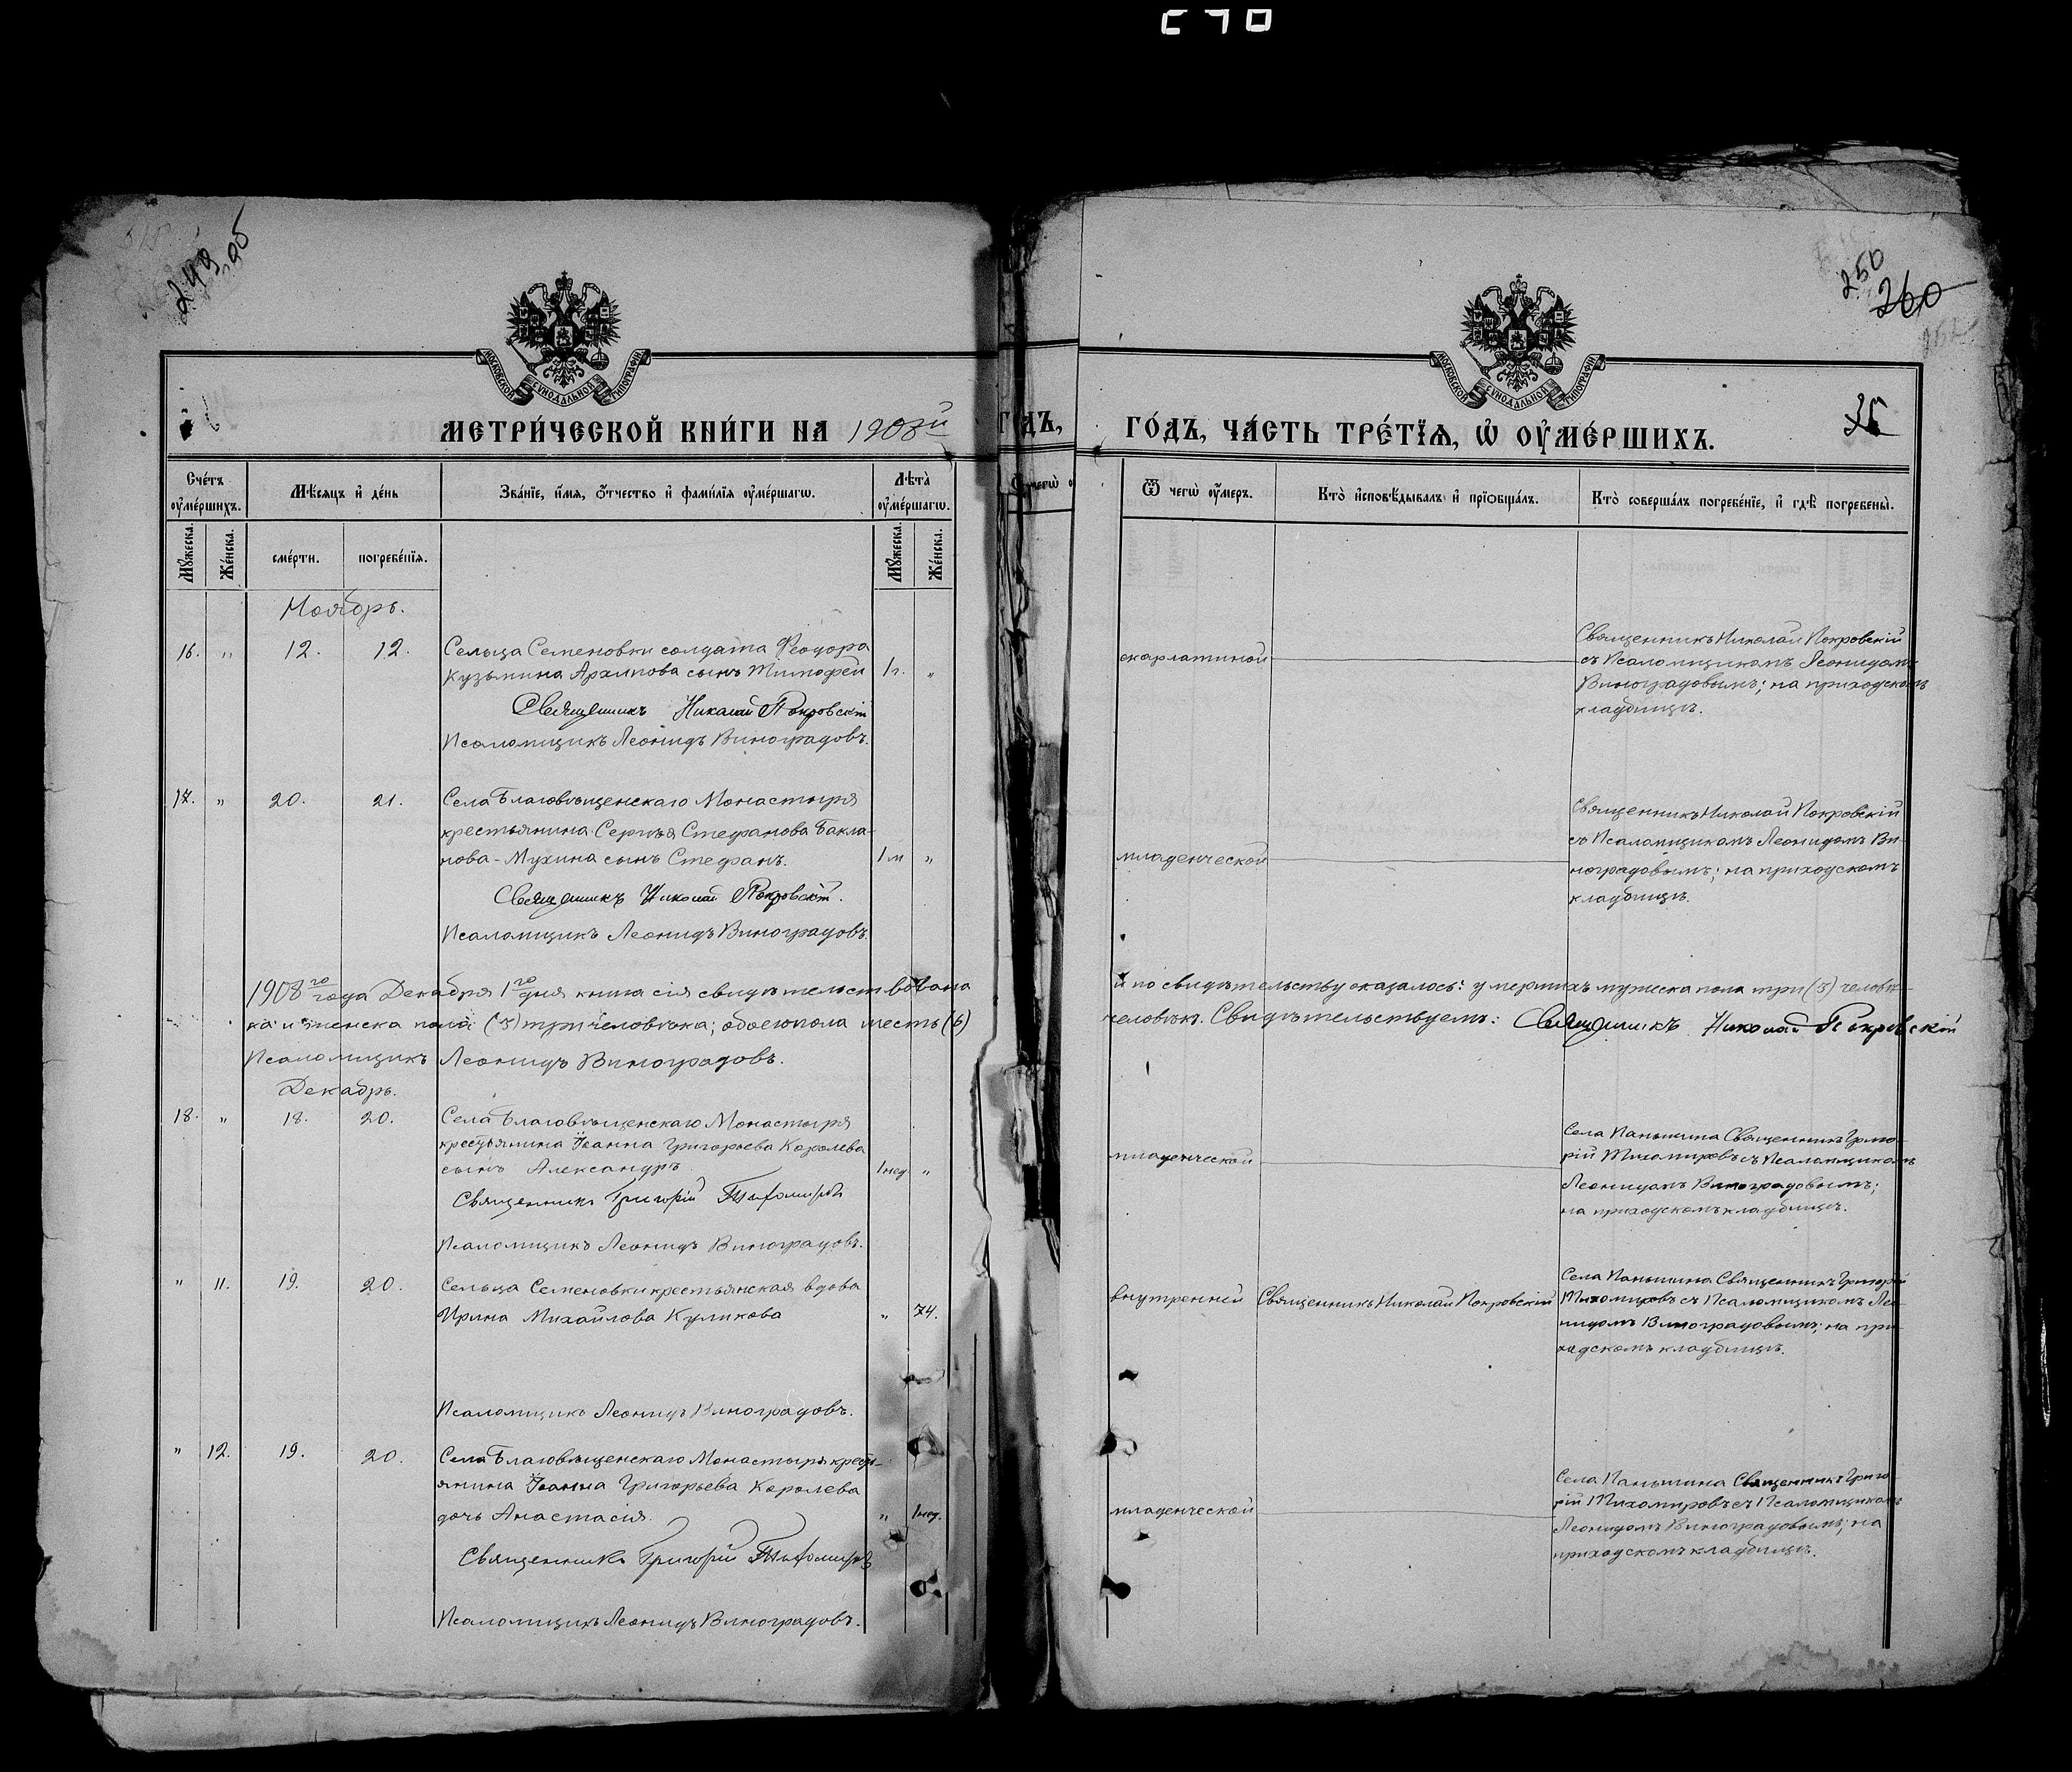 С 7 0
249
250
260
МОСКОВСКОЙ СѴНОДАЛЬНОЙ ТИПОГРАФІИ
МОСКОВСКОЙ СѴНОДАЛЬНОЙ ТИПОГРАФІИ
МЕТРИ́ЧЕСКОЙ КНИ́ГИ НА 1908й
ГО́ДЪ, ЧА́СТЬ ТРЕ́ТІѦ, Ѡ҆ ОУ҆МЕ́РШИХЪ.
Сче́тъ оу҆ме́ршихъ.
Мѣ́сяцъ и҆ де́нь
Зва́нїе, и҆́мя, ѻ҆́тчество и҆ фами́лїя оу҆ме́ршагѡ.
Лѣ̀та оу҆ме́ршагѡ.
Ѿ чегѡ̀ оу҆́меръ.
Кто̀ и҆сповѣ́дывалъ и҆ прїѡбща́лъ.
Кто̀ соверша́лъ погребе́нїе, и҆ гдѣ̀ погребены̀.
Мꙋ́жеска.
Же́нска.
сме́рти.
погребе́нїя.
Мꙋ́жеска.
Же́нска.
Ноябрь.
16. " 12. 12. Сельца Семеновки солдата Ѳеодора
Кузьмина Архипова сынъ Тимофей 1 г. "
Священникъ Николай Покровскій
Псаломщикъ Леонидъ Виноградовъ.
скарлатиной
Священникъ Николай Покровскій
съ Псаломщикомъ Леонидомъ
Виноградовымъ; на приходскомъ
кладбищѣ.
17. " 20. 21. Села Благовѣщенскаго Монастыря
крестьянина Сергѣя Стефанова Бакла-
нова-Мухина сынъ Стефанъ. 1 м "
Священникъ Николай Покровскій.
Псаломщикъ Леонидъ Виноградовъ.
младенческой
Священникъ Николай Покровскій
съ Псаломщикомъ Леонидомъ Ви-
ноградовымъ; на приходскомъ
кладбищѣ.
1908го года Декабря 1го дня книга сія свидѣтельствована и по свидѣтельству оказалось: умершихъ мужеска пола три (3) человѣ-
ка и женска пола (3) три человѣка; обоего пола шесть (6) человѣкъ. Свидѣтельствуемъ: Священникъ Николай Покровскій
Псаломщикъ Леонидъ Виноградовъ.
Декабрь.
18. " 18. 20. Села Благовѣщенскаго Монастыря
крестьянина Іоанна Григорьева Королева
сынъ Александръ. 1 нед "
Священникъ Григорій Тихомировъ
Псаломщикъ Леонидъ Виноградовъ.
младенческой
Села Паньшина Священникъ Григо-
рій Тихомировъ съ Псаломщикомъ
Леонидомъ Виноградовымъ;
на приходскомъ кладбищѣ.
" 11. 19. 20. Сельца Семеновки крестьянская вдова
Ирина Михайлова Куликова " 74.
Псаломщикъ Леонидъ Виноградовъ.
внутренней
Священникъ Николай Покровскій
Села Паньшина Священникъ Григорій
Тихомировъ съ Псаломщикомъ Лео-
нидомъ Виноградовымъ; на при-
ходскомъ кладбищѣ.
" 12. 19. 20. Села Благовѣщенскаго Монастыря кресть-
янина Іоанна Григорьева Королева
дочь Анастасія. " 1 нед.
Священникъ Григорій Тихомировъ
Псаломщикъ Леонидъ Виноградовъ.
младенческой
Села Паньшина Священникъ Григо-
рій Тихомировъ съ Псаломщикомъ
Леонидомъ Виноградовымъ; на
приходскомъ кладбищѣ.